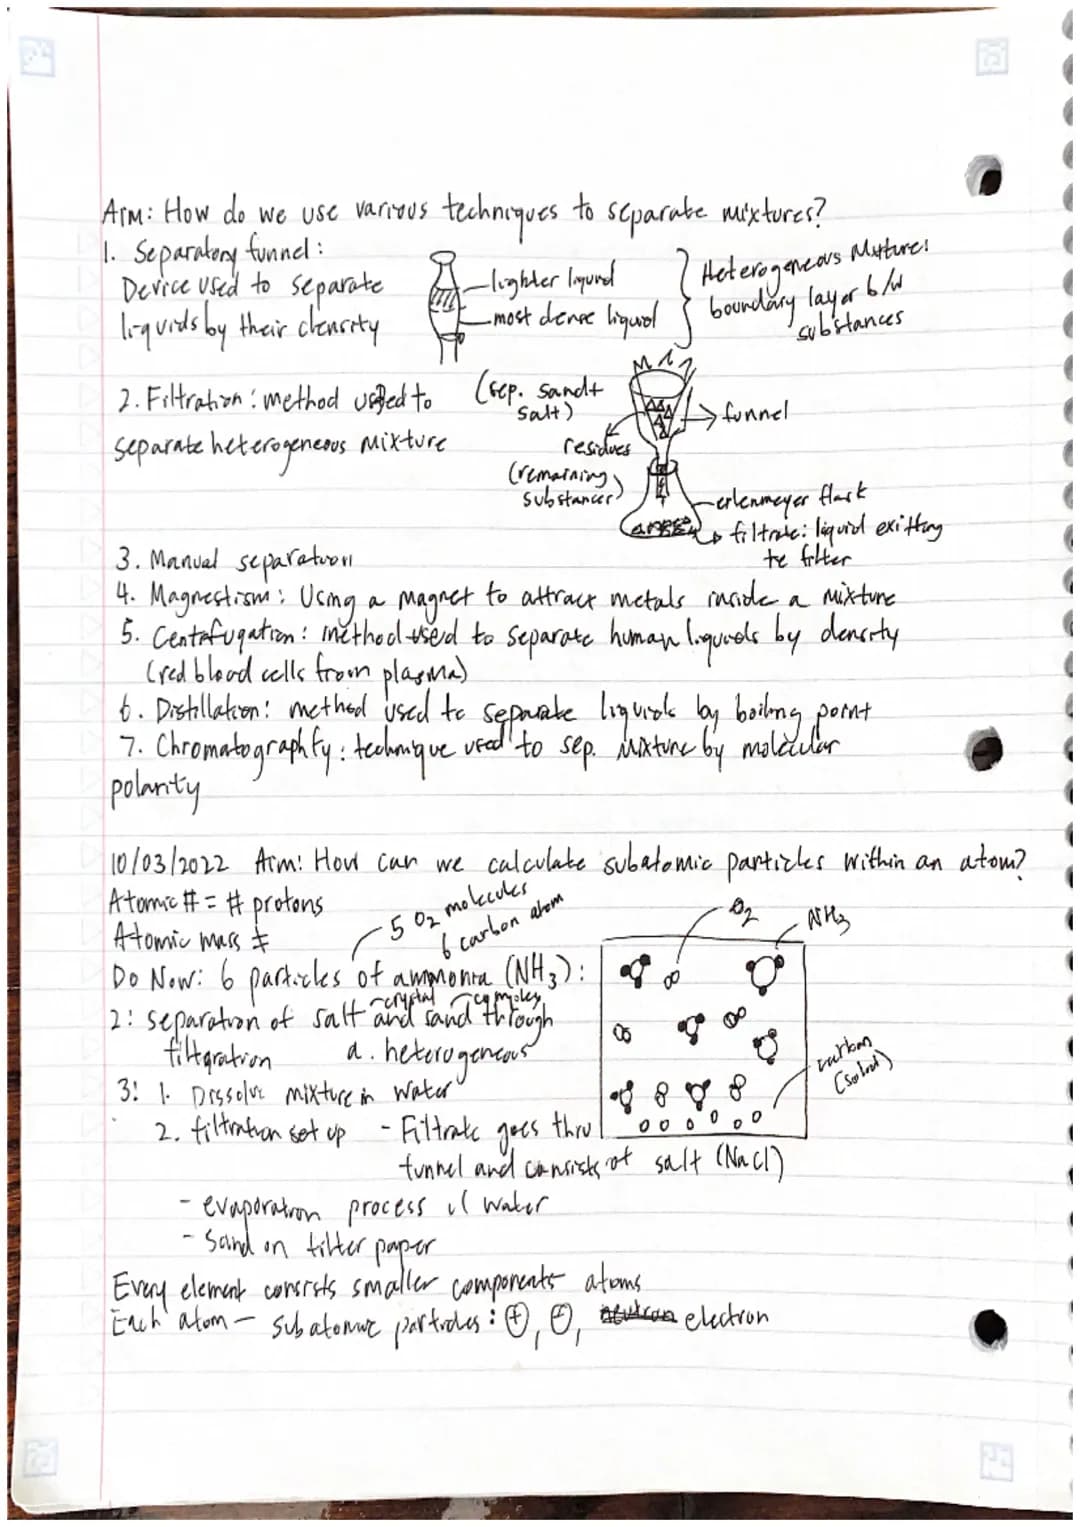 Aim: How do we use various techniques to separate mixtures?
1. Separatory funnel:
Device used to separate
liquids by their density
lighter liquid
most dense liquid
Heterogeneous Mixture:
boundary layer b/w
substances
2. Filtration: method used to
separate heterogeneous mixture
(sep. sand +
salt)
residues
(remaining
substances)
funnel
erlenmeyer flask
filtrate: liquid exitting
te filter
3. Manual separation
4. Magnestism: Using a magnet to attract metals inside a mixture
5. Centrifugation: method used to separate human liquids by density
(red blood cells from plasma)
6. Distillation: method used to separate liquids by boiling point
7. Chromatography: technique used to sep. mixture by molecular
polarity
10/03/2022 Aim: How can we calculate subatomic particles within an atom?
Atomic # = # protons
Atomic mass ≠
5 O2 molecules
6 carbon atom
Do Now: 6 particles of ammonia (NH3):
crystal
2: separation of salt and sand through
filtqration a. heterogeneous
3: 1. Dissolve mixture in water
2. filtration set up - Filtrate goes thru
funnel and consists of salt (NaCl)
O2
NH3
carbon
(solid)
- evaporation process of water
- Sand on filter paper
Every element consists smaller components atoms
Each atom - subatomic particles: +, electron